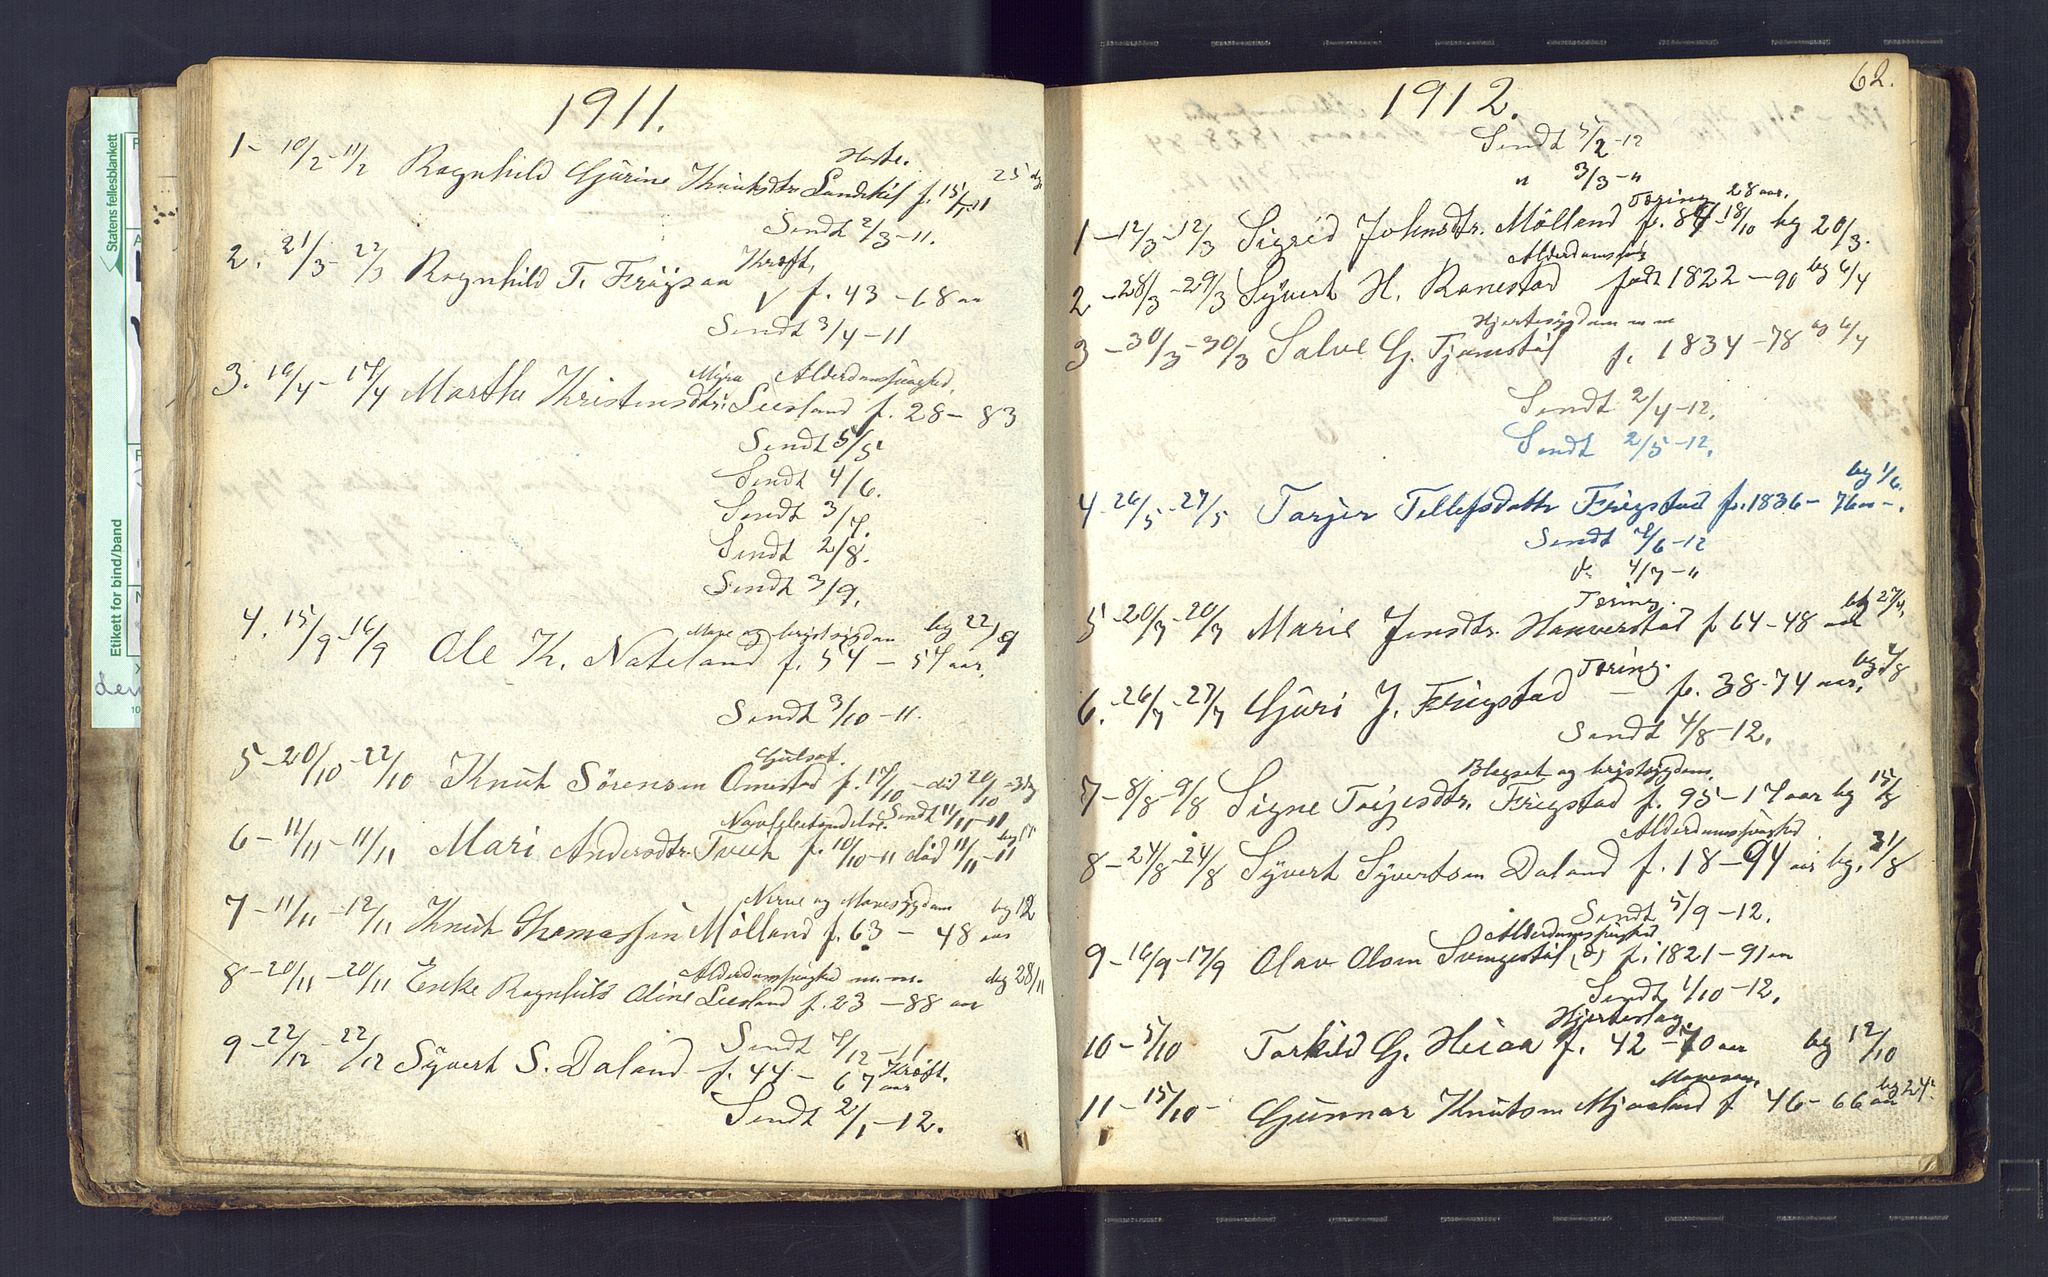 1911.
Hoste.
1- 10/2-11/2 Ragnhild Gurine Knutsdtr. Landskil f. 15/1-11 25 dg
Sendt 2/3-11.
2. 21/3-22/3 Ragnhild T. Frigsaa Kræft, f. 43 - 68 aa
Sendt 3/4-11
Myra Alderdomssvaghed,
3. 16/4-17/4 Marthe Kristensdtr. Lusland f. 28- 83
Sendt 5/5
Sendt 4/6.
Sendt 3/7.
Sendt 2/8.
Sendt 3/9.
Mave og brystsygdom beg 22/9
4. 15/9-16/9 Ole K. Nateland f. 54 - 57 aar.
Sendt 3/10-11.
Gulsot.
5-20/10-22/10 Knut Sørensen Omestad f. 17/10-død 20/10-3 dg
Navlebetændelse. Sendt 11/11-11
6-11/11-11/11 Mari Andersdtr. Tveit f. 10/10-11 død 11/11-11
Nerve og Mavesygdom beg 12
7-11/11-12/11 Knut Thomassen Mölland f. 63 - 48 aar
Alderdomssvaghed m.m. 28/11
8-20/11-20/11 Enke Ragnhild Oline Lusland f. 23 -88 aar
Sendt 7/12-11
9-22/12-22/12 Syvert S. Daland f. 44 - 67 aar Kræft.
Sendt 2/1-12.
62.
1912.
Sendt 5/2-12
" 3/3-"
Tæring 28 aar.
1-12/3-12/3 Sigrid Johnsdtr. Mölland f. 84 18/10 beg 20/3.
Alderdomssv.
2-28/3-29/3 Syvert H. Ranestad født 1822 -90 beg 6/4
Hjertesygdom m m
3-30/3-30/3 Salve G. Tjomstöl f. 1834-78 beg 6/4
Sendt 2/4-12.
Sendt 2/5-12.
beg 1/6.
4-26/5-27/5 Torjer Tellefsdattr Frigstad f. 1836- 76 aar.
Sendt 7/6-12
4/7-"
Tæring. beg 27/7.
5-20/7-20/7 Marie Jensdtr. Haaverstad f 64-48 aar
Tæring. beg /8
6.-26/7-27/7 Guri J. Frigstad f. 38-74 aar.
Sendt 4/8-12.
Blegsot og brystsygdom.
7-8/8-9/8 Signe Torjusdtr. Frigstad f. 95-17 aar beg 15/8
Alderdomssvaghed.
8-24/8-24/8 Syvert Syvertsen Daland f. 18-94 aar beg. 31/8
Sendt 5/9-12.
Alderdomssvaghed
9-16/9-17/9 Olav Olsen Svingestöl f. 1821-91 aa
Sendt 1/10-12.
Hjerteslag.
10-5/10 Torkild G. Heiaa f. 42 -70 aar beg 12/10
Mavesaar. beg 24.
11-15/10- Gunnar Knutsen Mjaaland f 46-66 aar
Statens fellesblankett
Etikett for bind/band